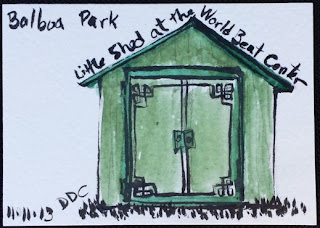 Balboa Park
Little Shed at the World Beat Center
DDC
11-11-13